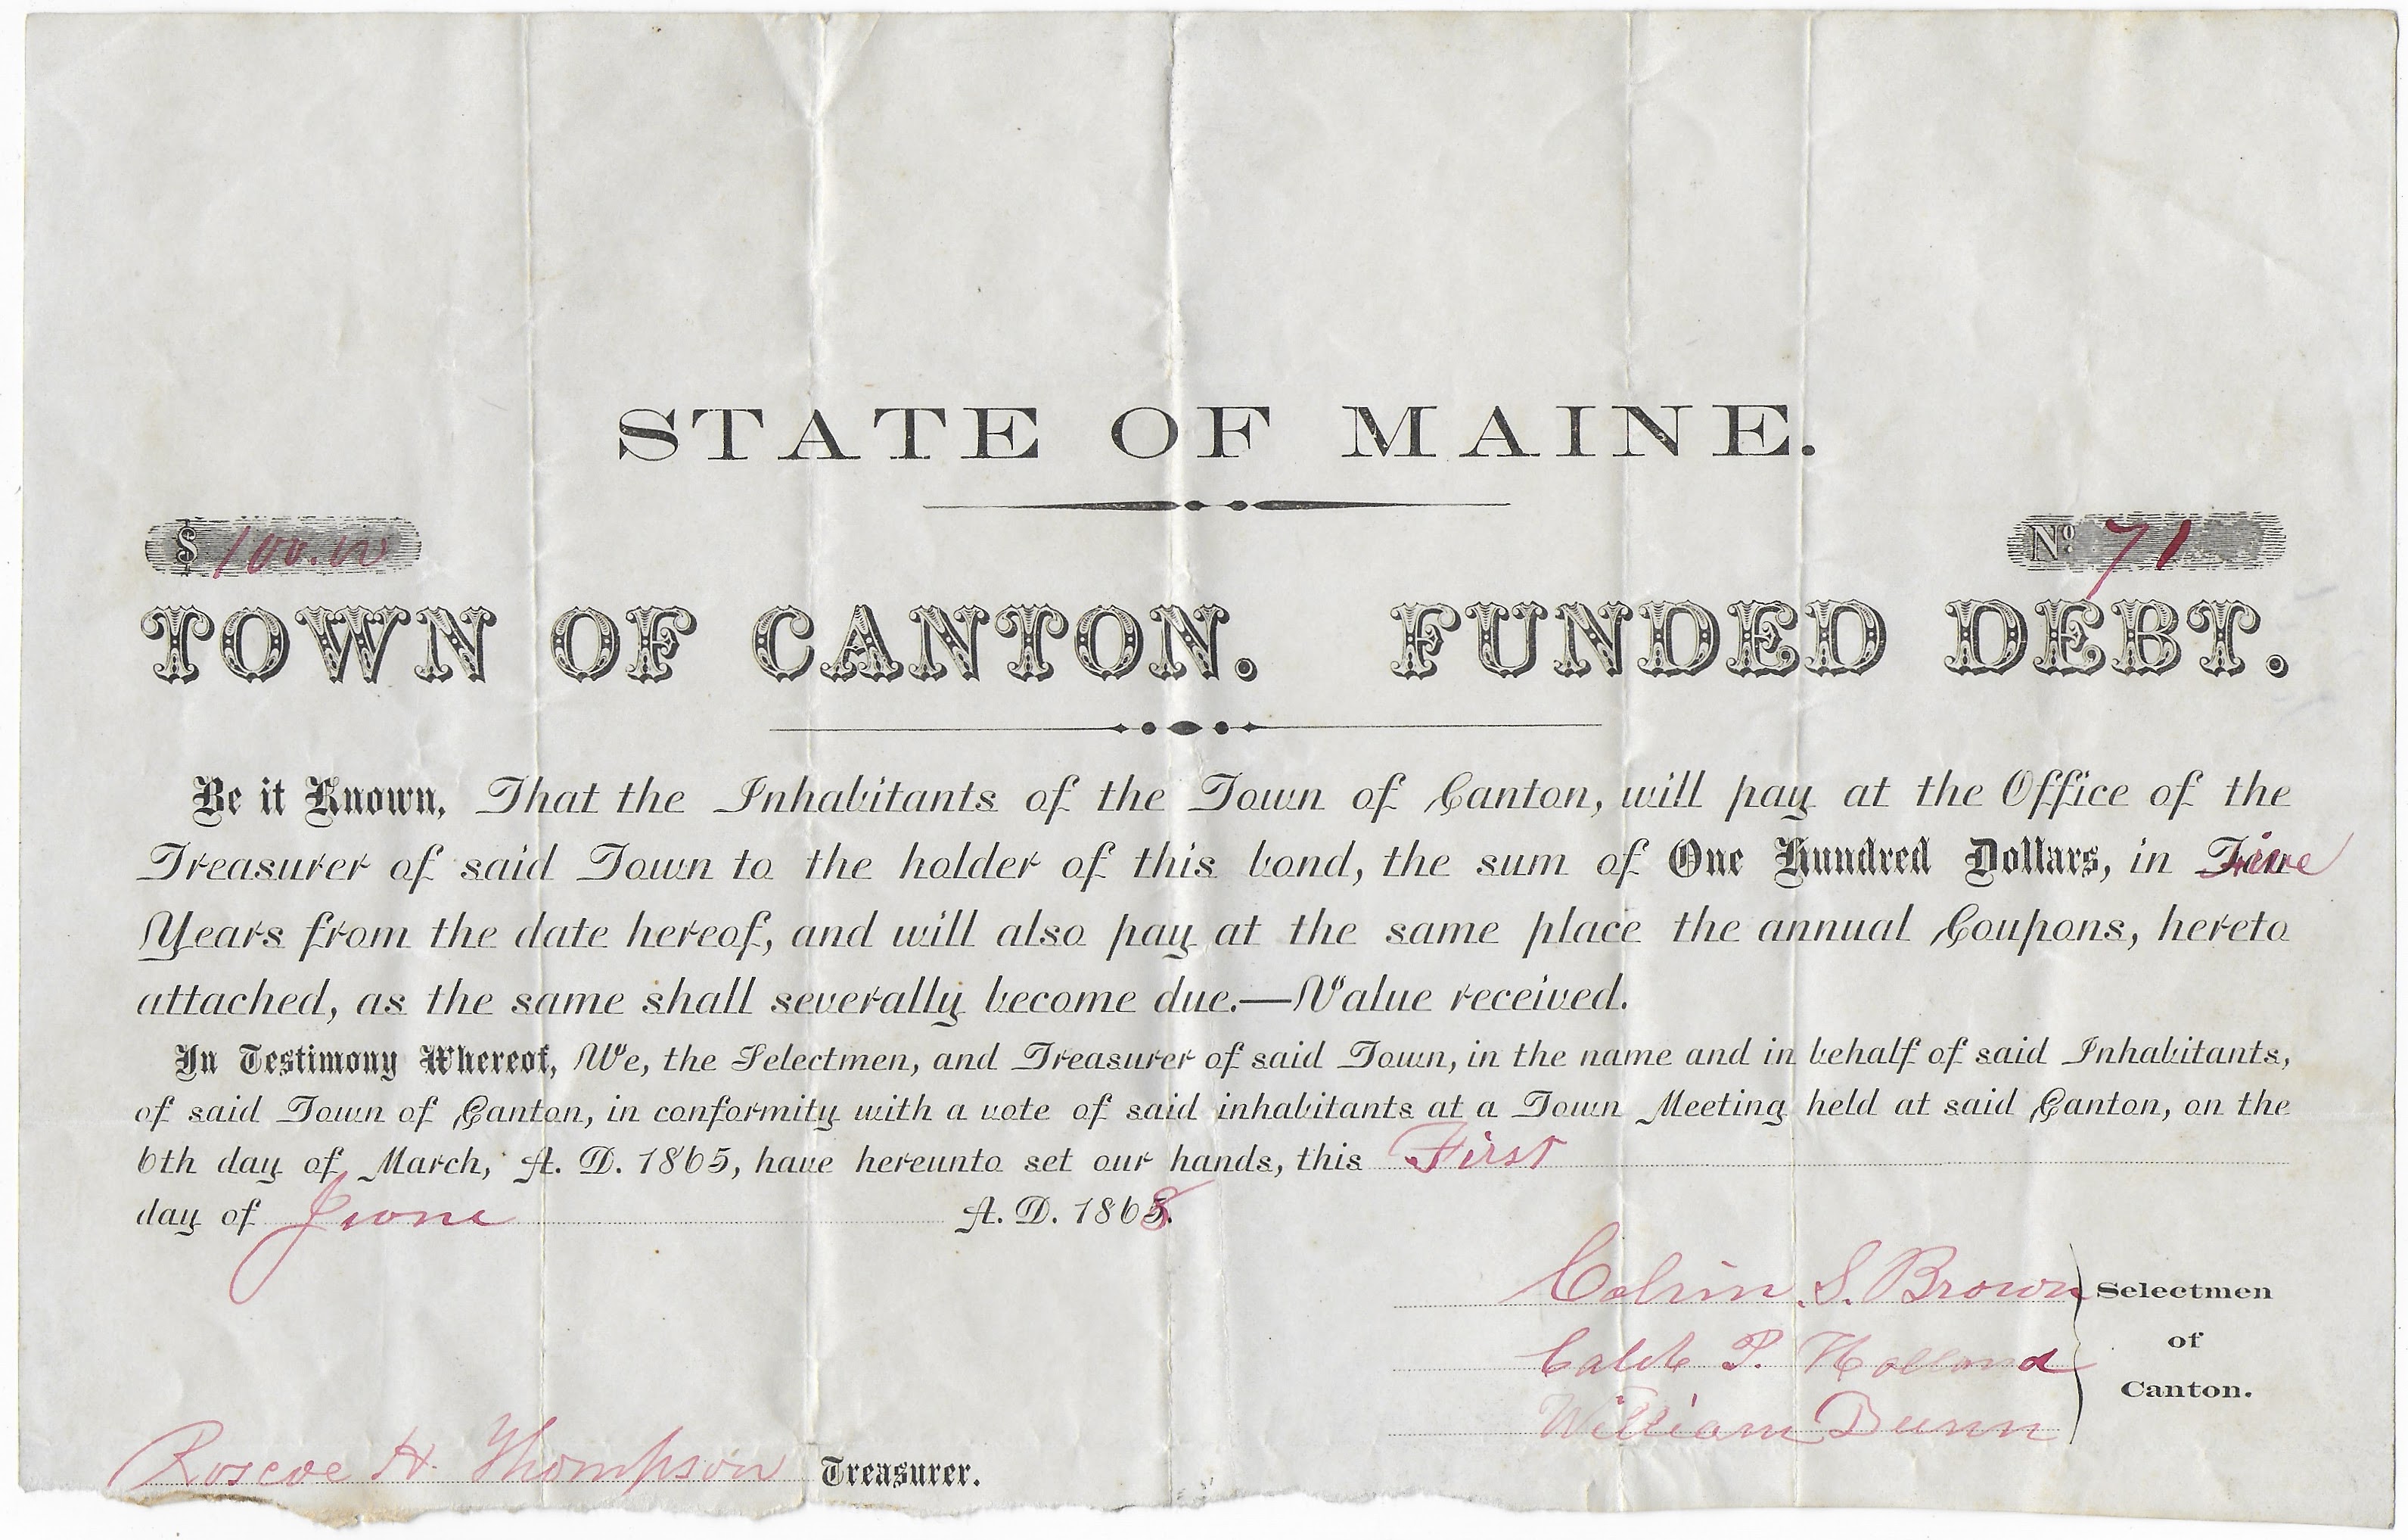 STATE OF MAINE.
$ 100.00
No. 71
TOWN OF CANTON. FUNDED DEBT.
Be it Known, That the Inhabitants of the Town of Canton, will pay at the Office of the
Treasurer of said Town to the holder of this bond, the sum of One Hundred Dollars, in Five
Years from the date hereof, and will also pay at the same place the annual Coupons, hereto
attached, as the same shall severally become due.—Value received.
In Testimony Whereof, We, the Selectmen, and Treasurer of said Town, in the name and in behalf of said Inhabitants,
of said Town of Canton, in conformity with a vote of said inhabitants at a Town Meeting held at said Canton, on the
6th day of March, A. D. 1865, have hereunto set our hands, this First
day of June A. D. 1868.
S. Brown Selectmen
Caleb P. Holland of
William Dunn Canton.
Roscoe H. Thompson Treasurer.